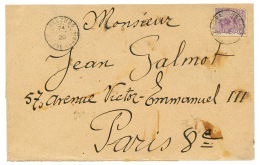 Monsieur
Jean Galmot
57, Avenue Victor-Emmanuel III
Paris 8e